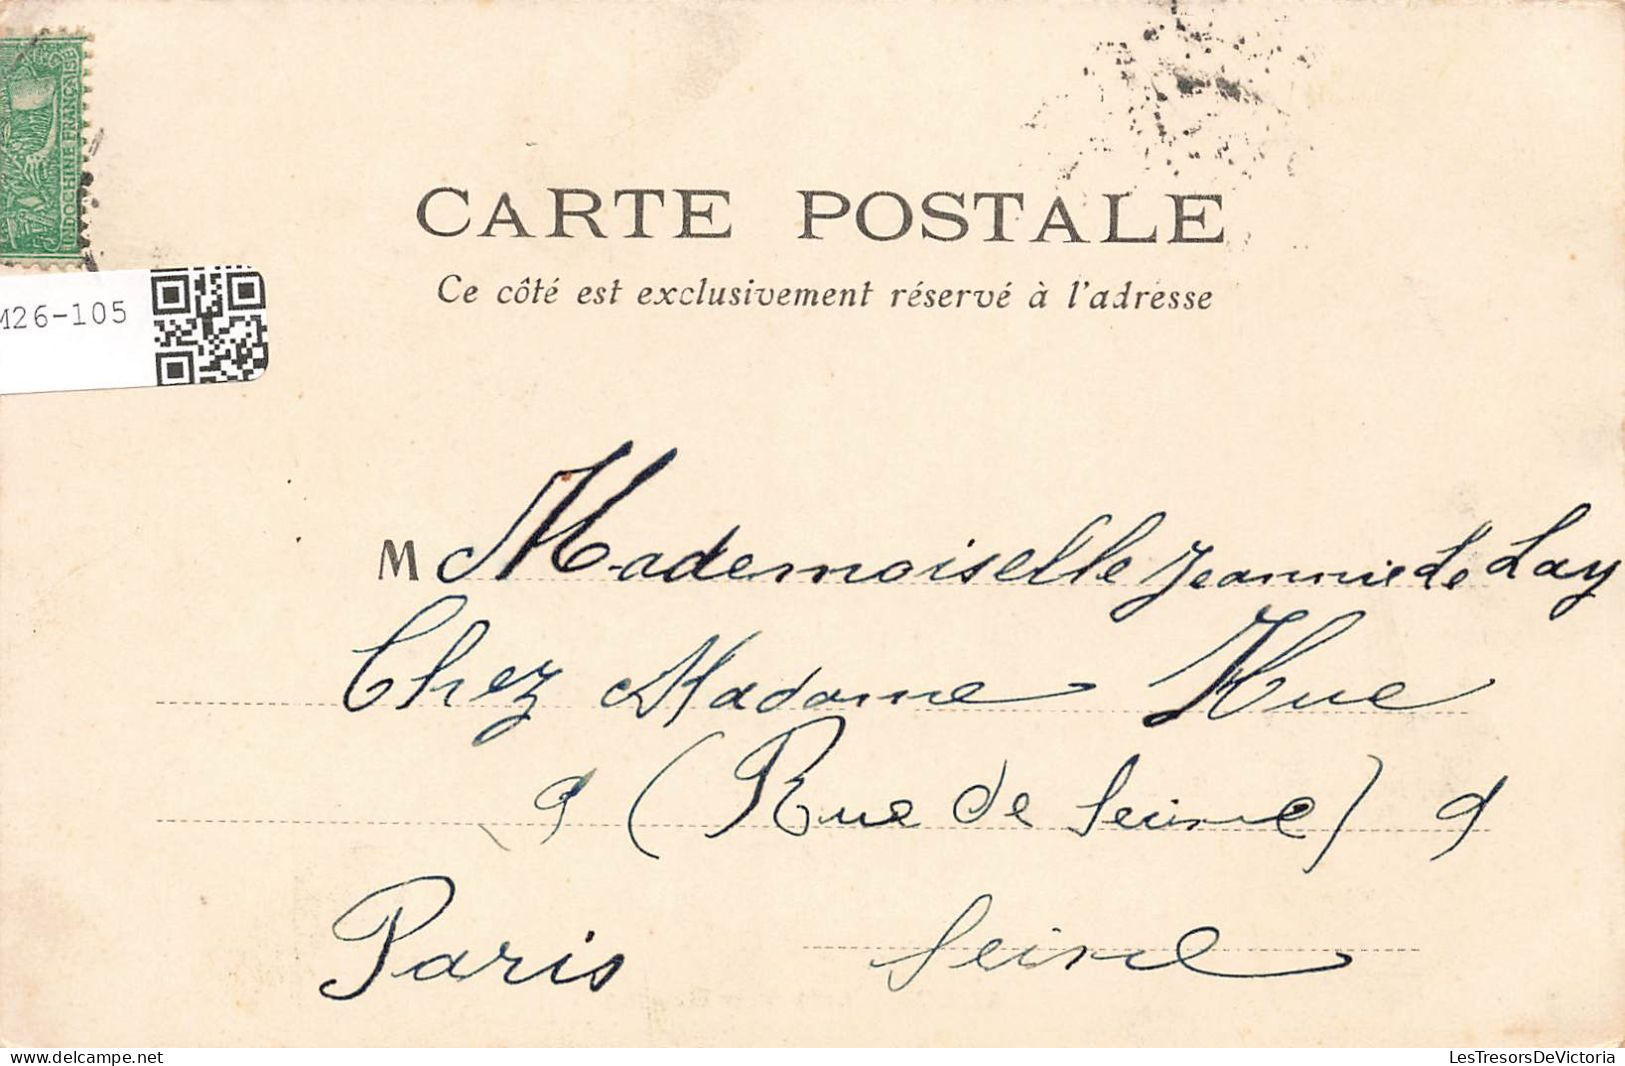 INDOCHINE FRANÇAISE
M26-105
CARTE POSTALE
Ce côté est exclusivement réservé à l'adresse
M Mademoiselle Jeannie Le Lay
Chez Madame Hue
9 (Rue de Seine) 9
Paris Seine
www.delcampe.net
LesTresorsDeVictoria